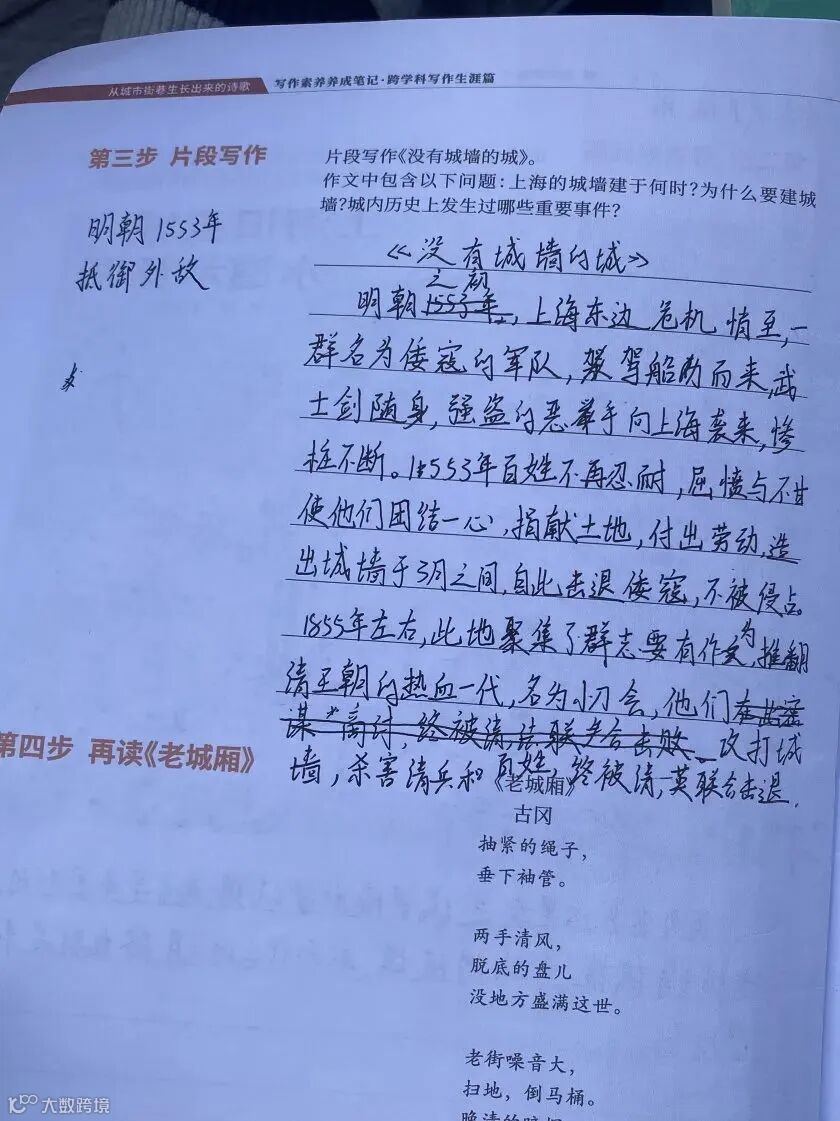 从城市街巷生长出来的诗歌
写作素养养成笔记·跨学科写作生涯篇
第三步 片段写作
片段写作《没有城墙的城》。
作文中包含以下问题:上海的城墙建于何时?为什么要建城
墙?城内历史上发生过哪些重要事件?
明朝1553年
抵御外敌
《没有城墙的城》
之前
明朝1553年,上海东边危机悄至,一
群名为倭寇的军队,驾船而来,武
士剑随身,强盗的恶举手向上海袭来,惨
拒不断。1553年百姓不再忍耐,屈愤与不甘
使他们团结一心,捐献土地,付出劳动,造
出城墙于3月之间,自此击退倭寇,不被侵占
1855年左右,此地聚集了群志要有作为,推翻
清王朝的热血一代,名为小刀会,他们
终被清,法联合击败 攻打城
墙,杀害清兵和百姓,终被清,英联合击退.
第四步 再读《老城厢》
《老城厢》
古冈
抽紧的绳子,
垂下袖管。
两手清风,
脱底的盘儿
没地方盛满这世。
老街噪音大,
扫地,倒马桶。
大数跨境